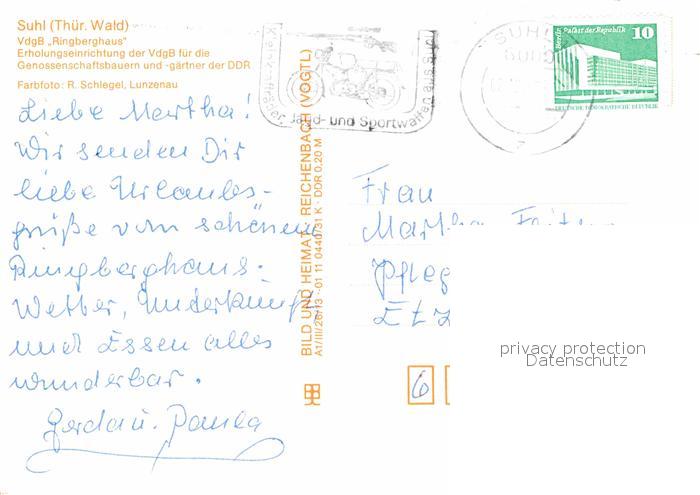 Suhl (Thür. Wald)
VdgB „Ringberghaus"
Erholungseinrichtung der VdgB für die
Genossenschaftsbauern und -gärtner der DDR
Farbfoto: R. Schlegel, Lunzenau
Liebe Martha!
Wir senden Dir
liebe Urlaubs-
grüße vom schönen
Ringberghaus.
Wetter, Unterkunft
und Essen alles
wunderbar.
Gerda u. Paula
BILD UND HEIMAT REICHENBACH (VOGTL)
A1/III/26/13 · 01 11 0440/31 K · DDR 0,20 M
Kleinkrafträder
Jagd- und Sportwaffen aus Suhl
SUHL
Berlin, Palast der Republik
10
DEUTSCHE DEMOKRATISCHE REPUBLIK
Frau
Martha
Pfleg
6
privacy protection
Datenschutz